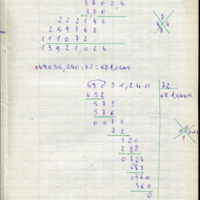 37024
376
222144
259168
111072
13921,024
49035,240:72=681,045
49035,240 72
432 681,045
583
576
0075
72
288
360
0